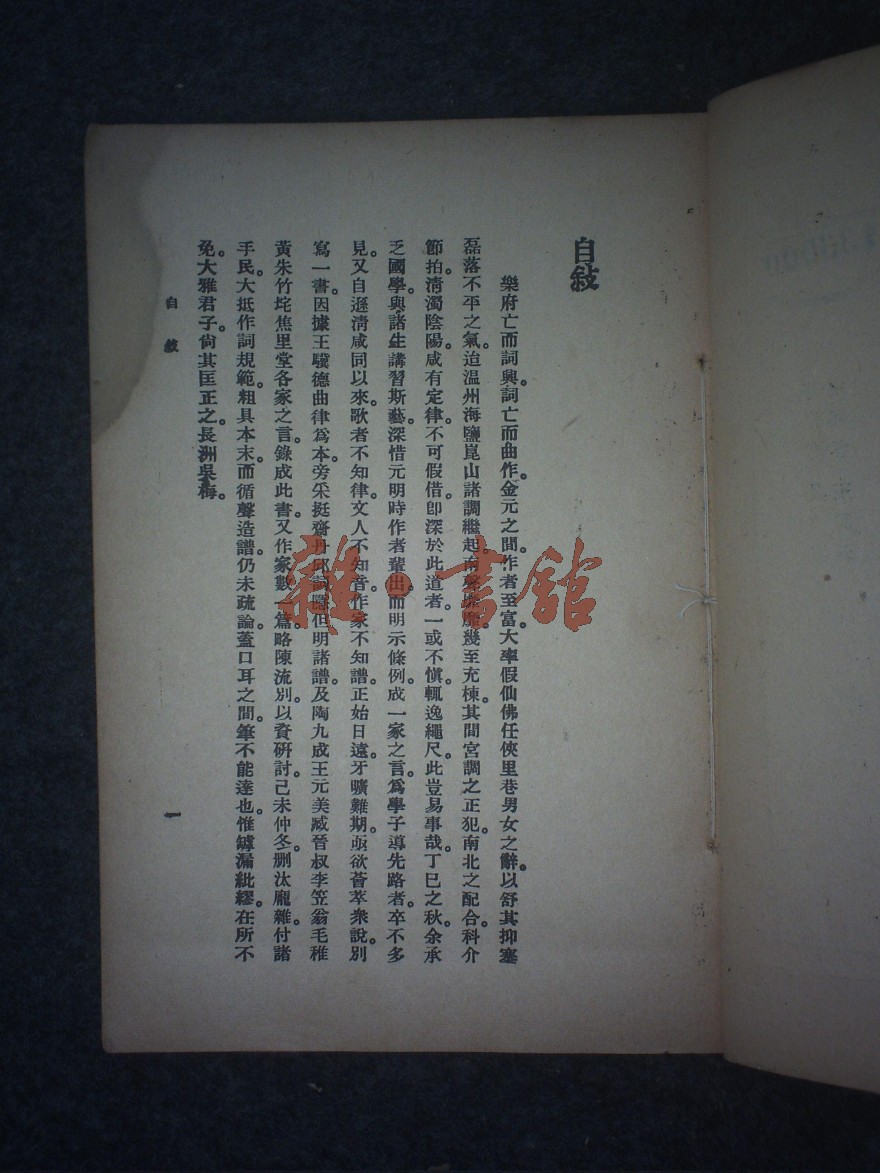 自敍
樂府亡而詞興。詞亡而曲作。金元之間。作者至富。大率假仙佛任俠里巷男女之辭。以舒其抑塞
磊落不平之氣。迨温州海鹽崑山諸調繼起。南 幾至充棟。其間宮調之正犯。南北之配合。科介
節拍。淸濁陰陽。咸有定律。不可假借。卽深於此道者。一或不愼。輒逸繩尺。此豈易事哉。丁巳之秋。余承
乏國學。與諸生講習斯藝。深惜元明時作者輩出。而明示條例。成一家之言。爲學子導先路者。卒不多
見。又自遜淸咸同以來。歌者不知律。文人不知音。作家不知譜。正始日遠。牙曠難期。亟欲薈萃衆說。別
寫一書。因據王驥德曲律爲本。旁采挺齋丹邱 隱但明諸譜。及陶九成王元美臧晉叔李笠翁毛稚
黃朱竹垞焦里堂各家之言。錄成此書。又作家數 篇。略陳流別。以資硏討。己未仲冬。删汰龐雜。付諸
手民。大抵作詞規範。粗具本末。而循聲造譜。仍未疏論。蓋口耳之間。筆不能達也。惟罅漏紕繆。在所不
免。大雅君子。尙其匡正之。長洲吳梅。
自敍
一
雜·書舘